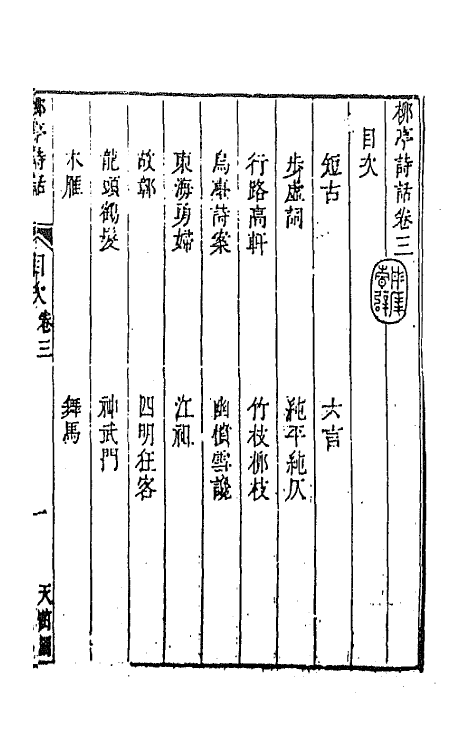 柳亭詩話卷三
目次
短古　六言
步虛詞　純平純仄
行路高軒　竹枝柳枝
烏臺詩案　幽憤雪讒
東海勇婦　江祠
故鄣　四明狂客
龍頭鶴髮　神武門
木雁　舞馬
柳亭詩話　目次　卷三　一　天茁園